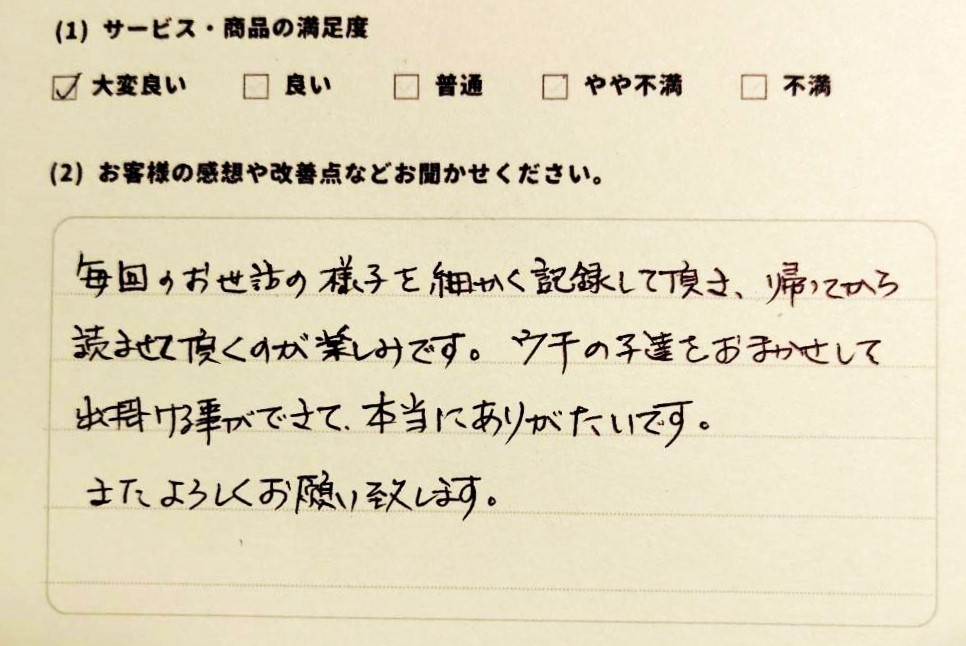 (1) サービス・商品の満足度
☑ 大変良い □ 良い □ 普通 □ やや不満 □ 不満
(2) お客様の感想や改善点などお聞かせください。
毎回のお世話の様子を細かく記録して頂き、帰ってから
読ませて頂くのが楽しみです。ウチの子達をおまかせして
出掛ける事ができて、本当にありがたいです。
またよろしくお願い致します。